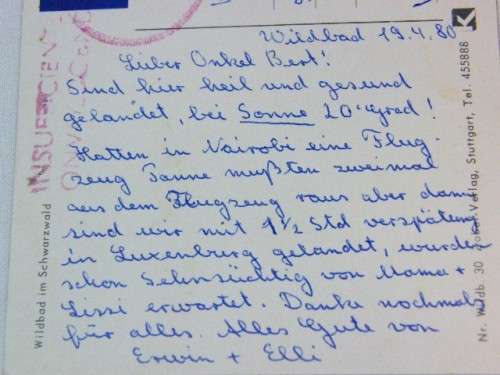 Wildbad 19.4.80
Lieber Onkel Bert!
Sind hier heil und gesund
gelandet, bei Sonne 20° grad!
Hatten in Nairobi eine Flug-
zeug Panne mußten zweimal
aus dem Flugzeug raus aber dann
sind wir mit 1½ Std verspätung
in Luxenburg gelandet, wurden
schon Sehnsüchtig von Mama +
Lissi erwartet. Danke nochmals
für alles. Alles Gute von
Erwin + Elli
Wildbad im Schwarzwald
INSUFFICIENT
Nr. Wildb. 30 Verlag, Stuttgart, Tel. 455888
K